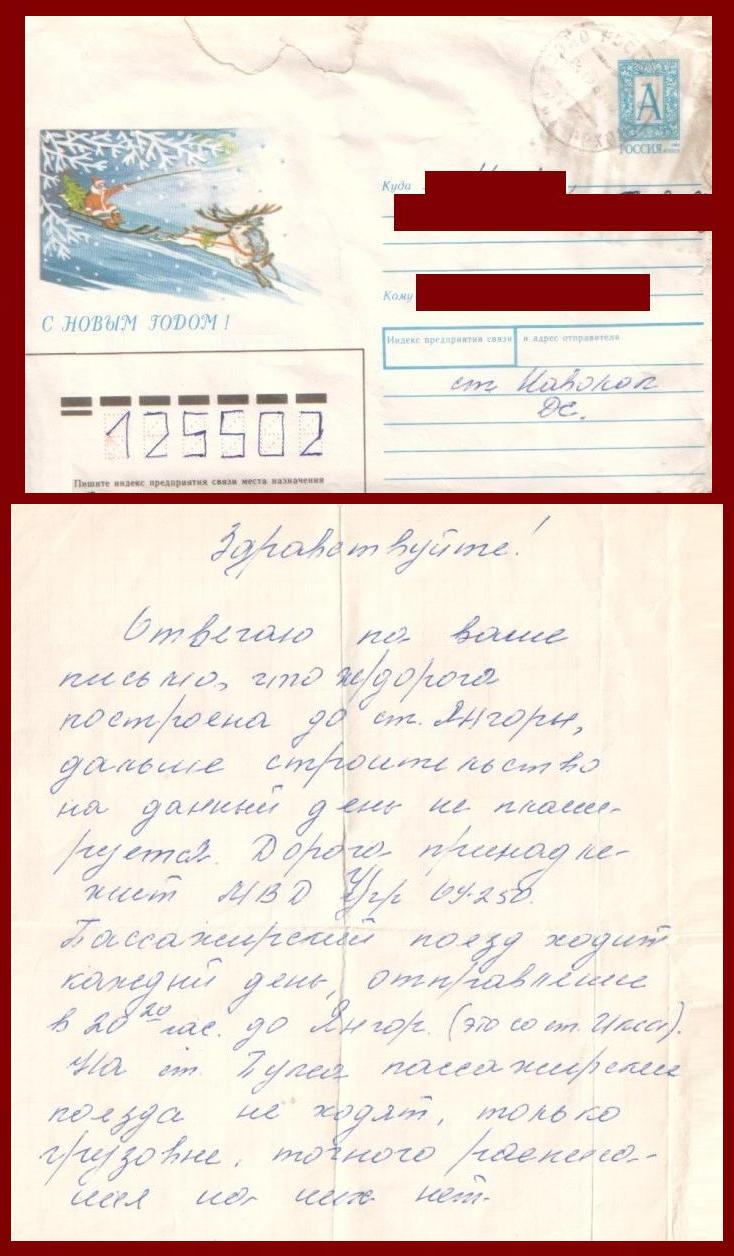 А
РОССИЯ
Куда
Кому
С НОВЫМ ГОДОМ!
Индекс предприятия связи и адрес отправителя
ст. Наволок
ДС.
125502
Пишите индекс предприятия связи места назначения
Здравствуйте!
Отвечаю на ваше
письмо, что ж/дорога
построена до ст. Янгоры,
дальше строительство
на данный день не плани-
руется. Дорога принадле-
жит МВД Учр УЧ-250.
Пассажирский поезд ходит
каждый день, отправление
в 20 20 час. до Янгор. (это со ст. Икса).
На ст. пассажирские
поезда не ходят, только
грузовые, точного расписа-
ния на них нет.